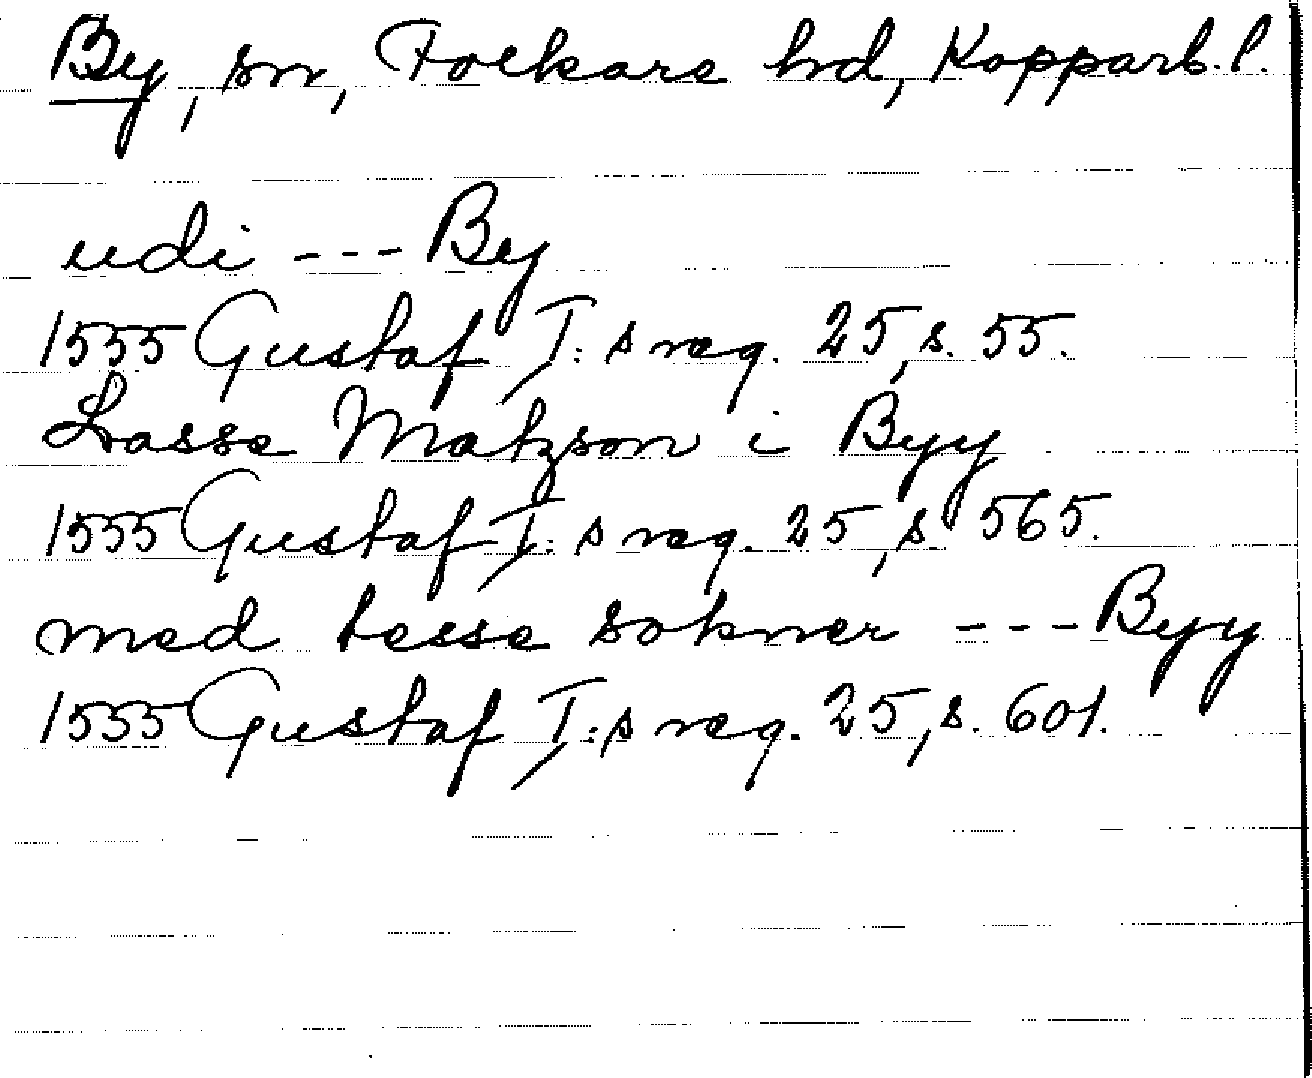 By, sn, Folkare hd, Kopparb. l.
udi --- By
1555 Gustaf I:s reg. 25, s. 55.
Lasse Matzson i Byy
1555 Gustaf I:s reg. 25, s 565.
med tesse sokner --- Byy
1555 Gustaf I:s reg. 25, s. 601.